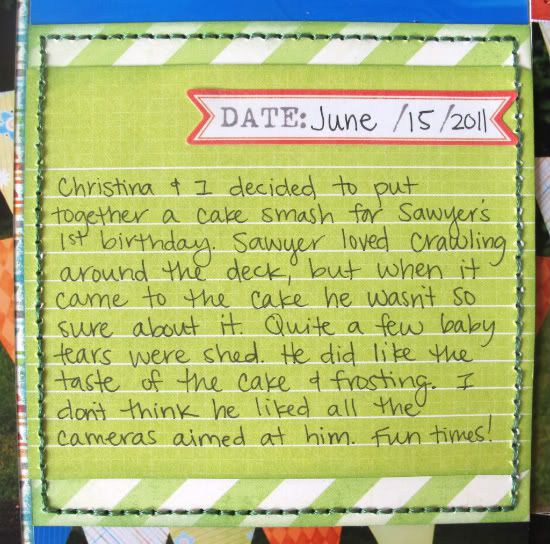 DATE: June /15/2011
Christina & I decided to put
together a cake smash for Sawyer's
1st birthday. Sawyer loved crawling
around the deck, but when it
came to the cake he wasn't so
sure about it. Quite a few baby
tears were shed. He did like the
taste of the cake & frosting. I
don't think he liked all the
cameras aimed at him. Fun times!